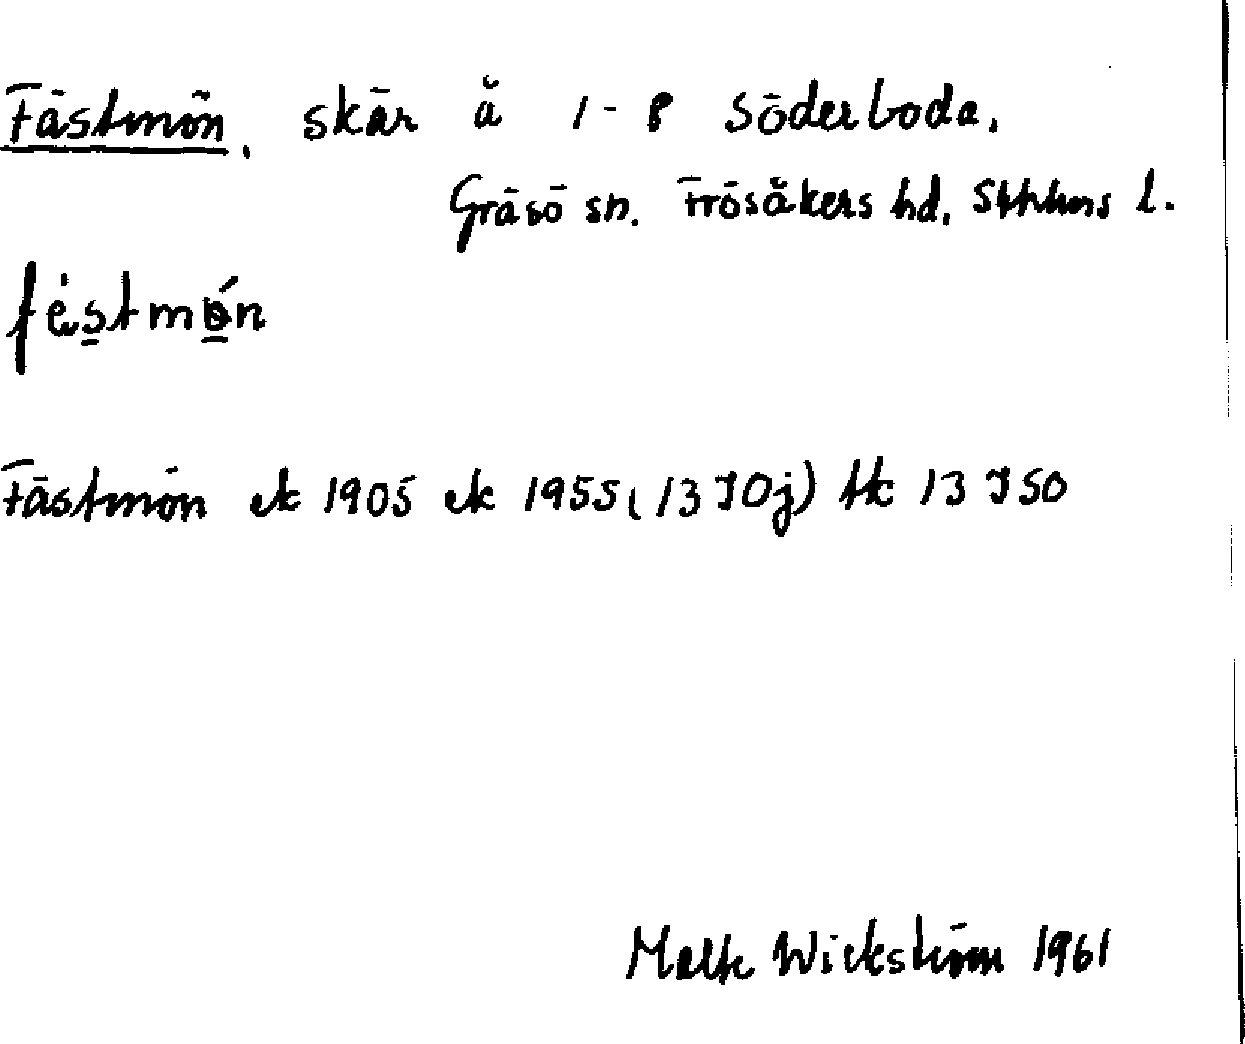 Fästmön, skär å 1-8 Söderboda,
Gräsö sn. Frösåkers hd, Sthlms l.
fèstmǿn
Fästmön ek 1905 ek 1955 (13 I 0j) tk 13 I SO
Malte Wickström 1961